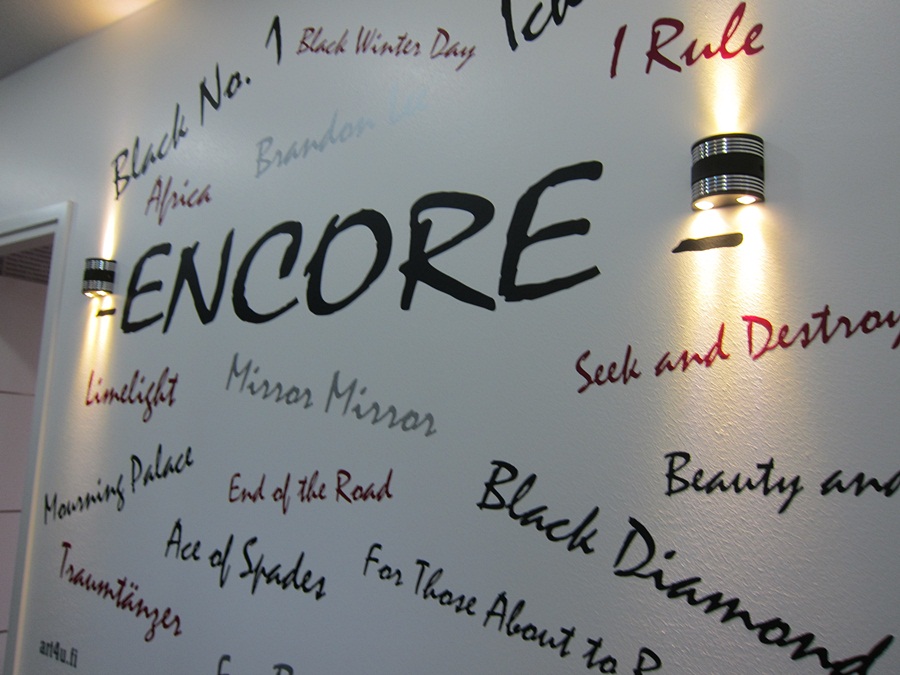 Black No. 1
Black Winter Day
I Rule
Brandon Lee
Africa
- ENCORE -
Seek and Destroy
Limelight
Mirror Mirror
Mourning Palace
End of the Road
Beauty and
Black Diamond
Ace of Spades
For Those About to R
Traumtänzer
art4u.fi